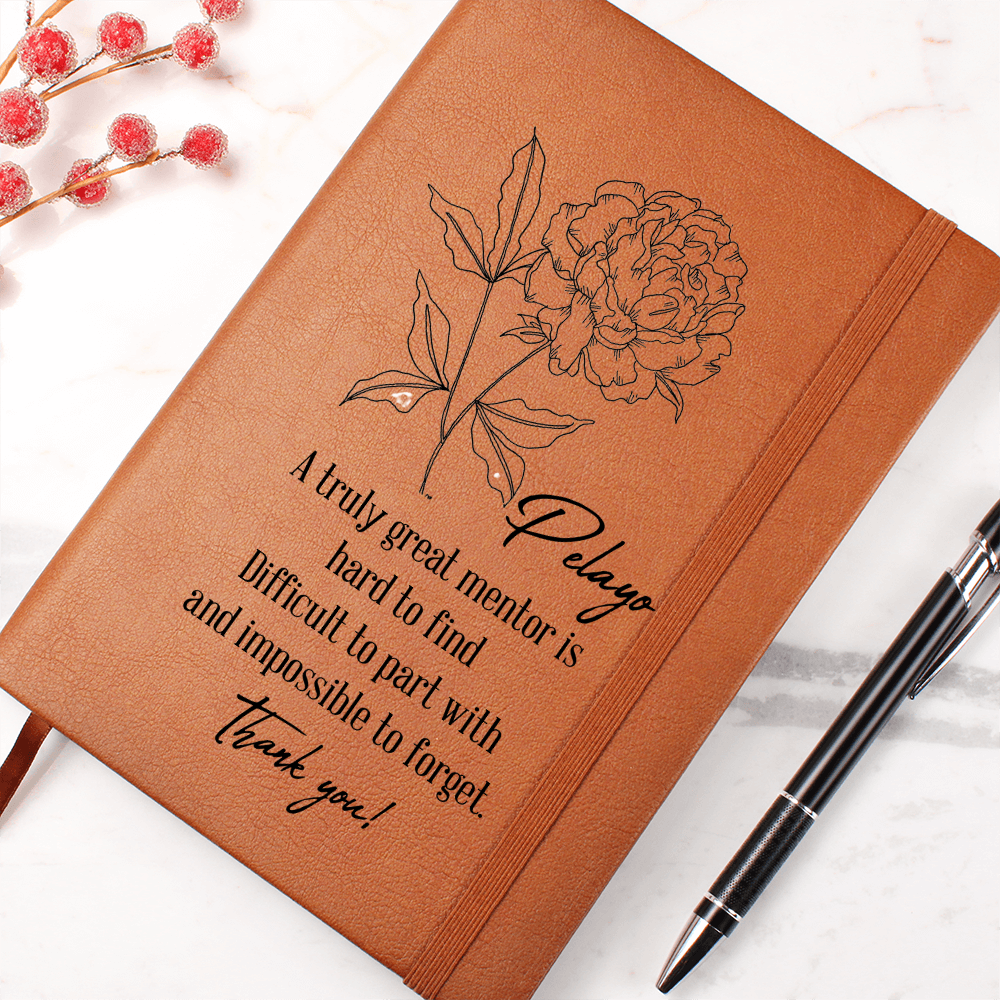 Pelayo
A truly great mentor is
hard to find
Difficult to part with
and impossible to forget.
Thank you!